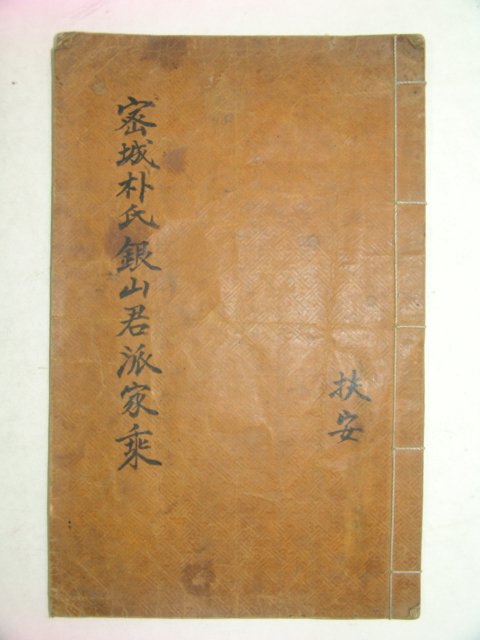 扶安
密城朴氏銀山君派家乘